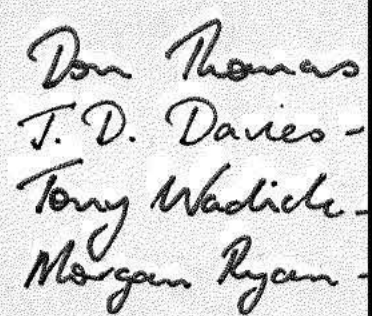 Don Thomas
J. D. Davies -
Tony Wadick -
Morgan Ryan -